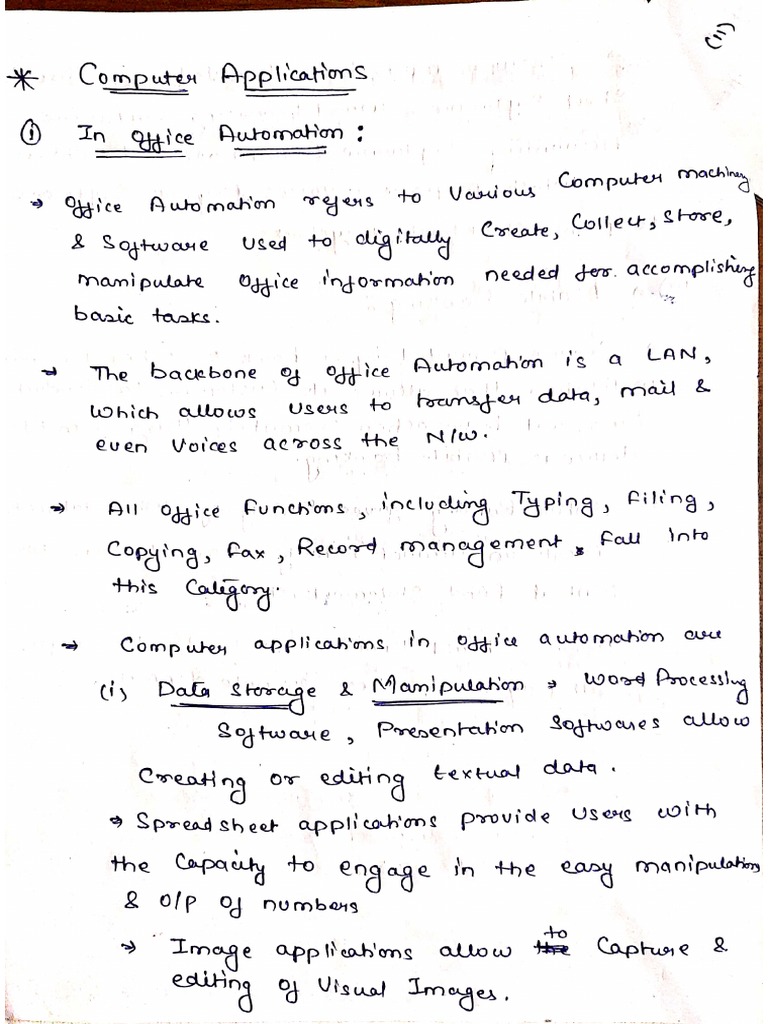 * Computer Applications
① In office Automation :
→ office Automation refers to Various Computer machinery
& Software used to digitally Create, Collect, Store,
manipulate office information needed for accomplishing
basic tasks.
→ The backbone of office Automation is a LAN,
which allows users to transfer data, mail &
even voices across the N/w.
→ All office functions, including Typing, Filing,
Copying, Fax, Record management, fall into
this Category.
→ Computer applications in office automation are
(i) Data Storage & Manipulation → Word Processing
Software, Presentation Softwares allow
Creating or editing textual data.
→ Spreadsheet applications provide users with
the Capacity to engage in the easy manipulation
& O/P of numbers
→ Image applications allow to Capture &
editing of Visual Images.